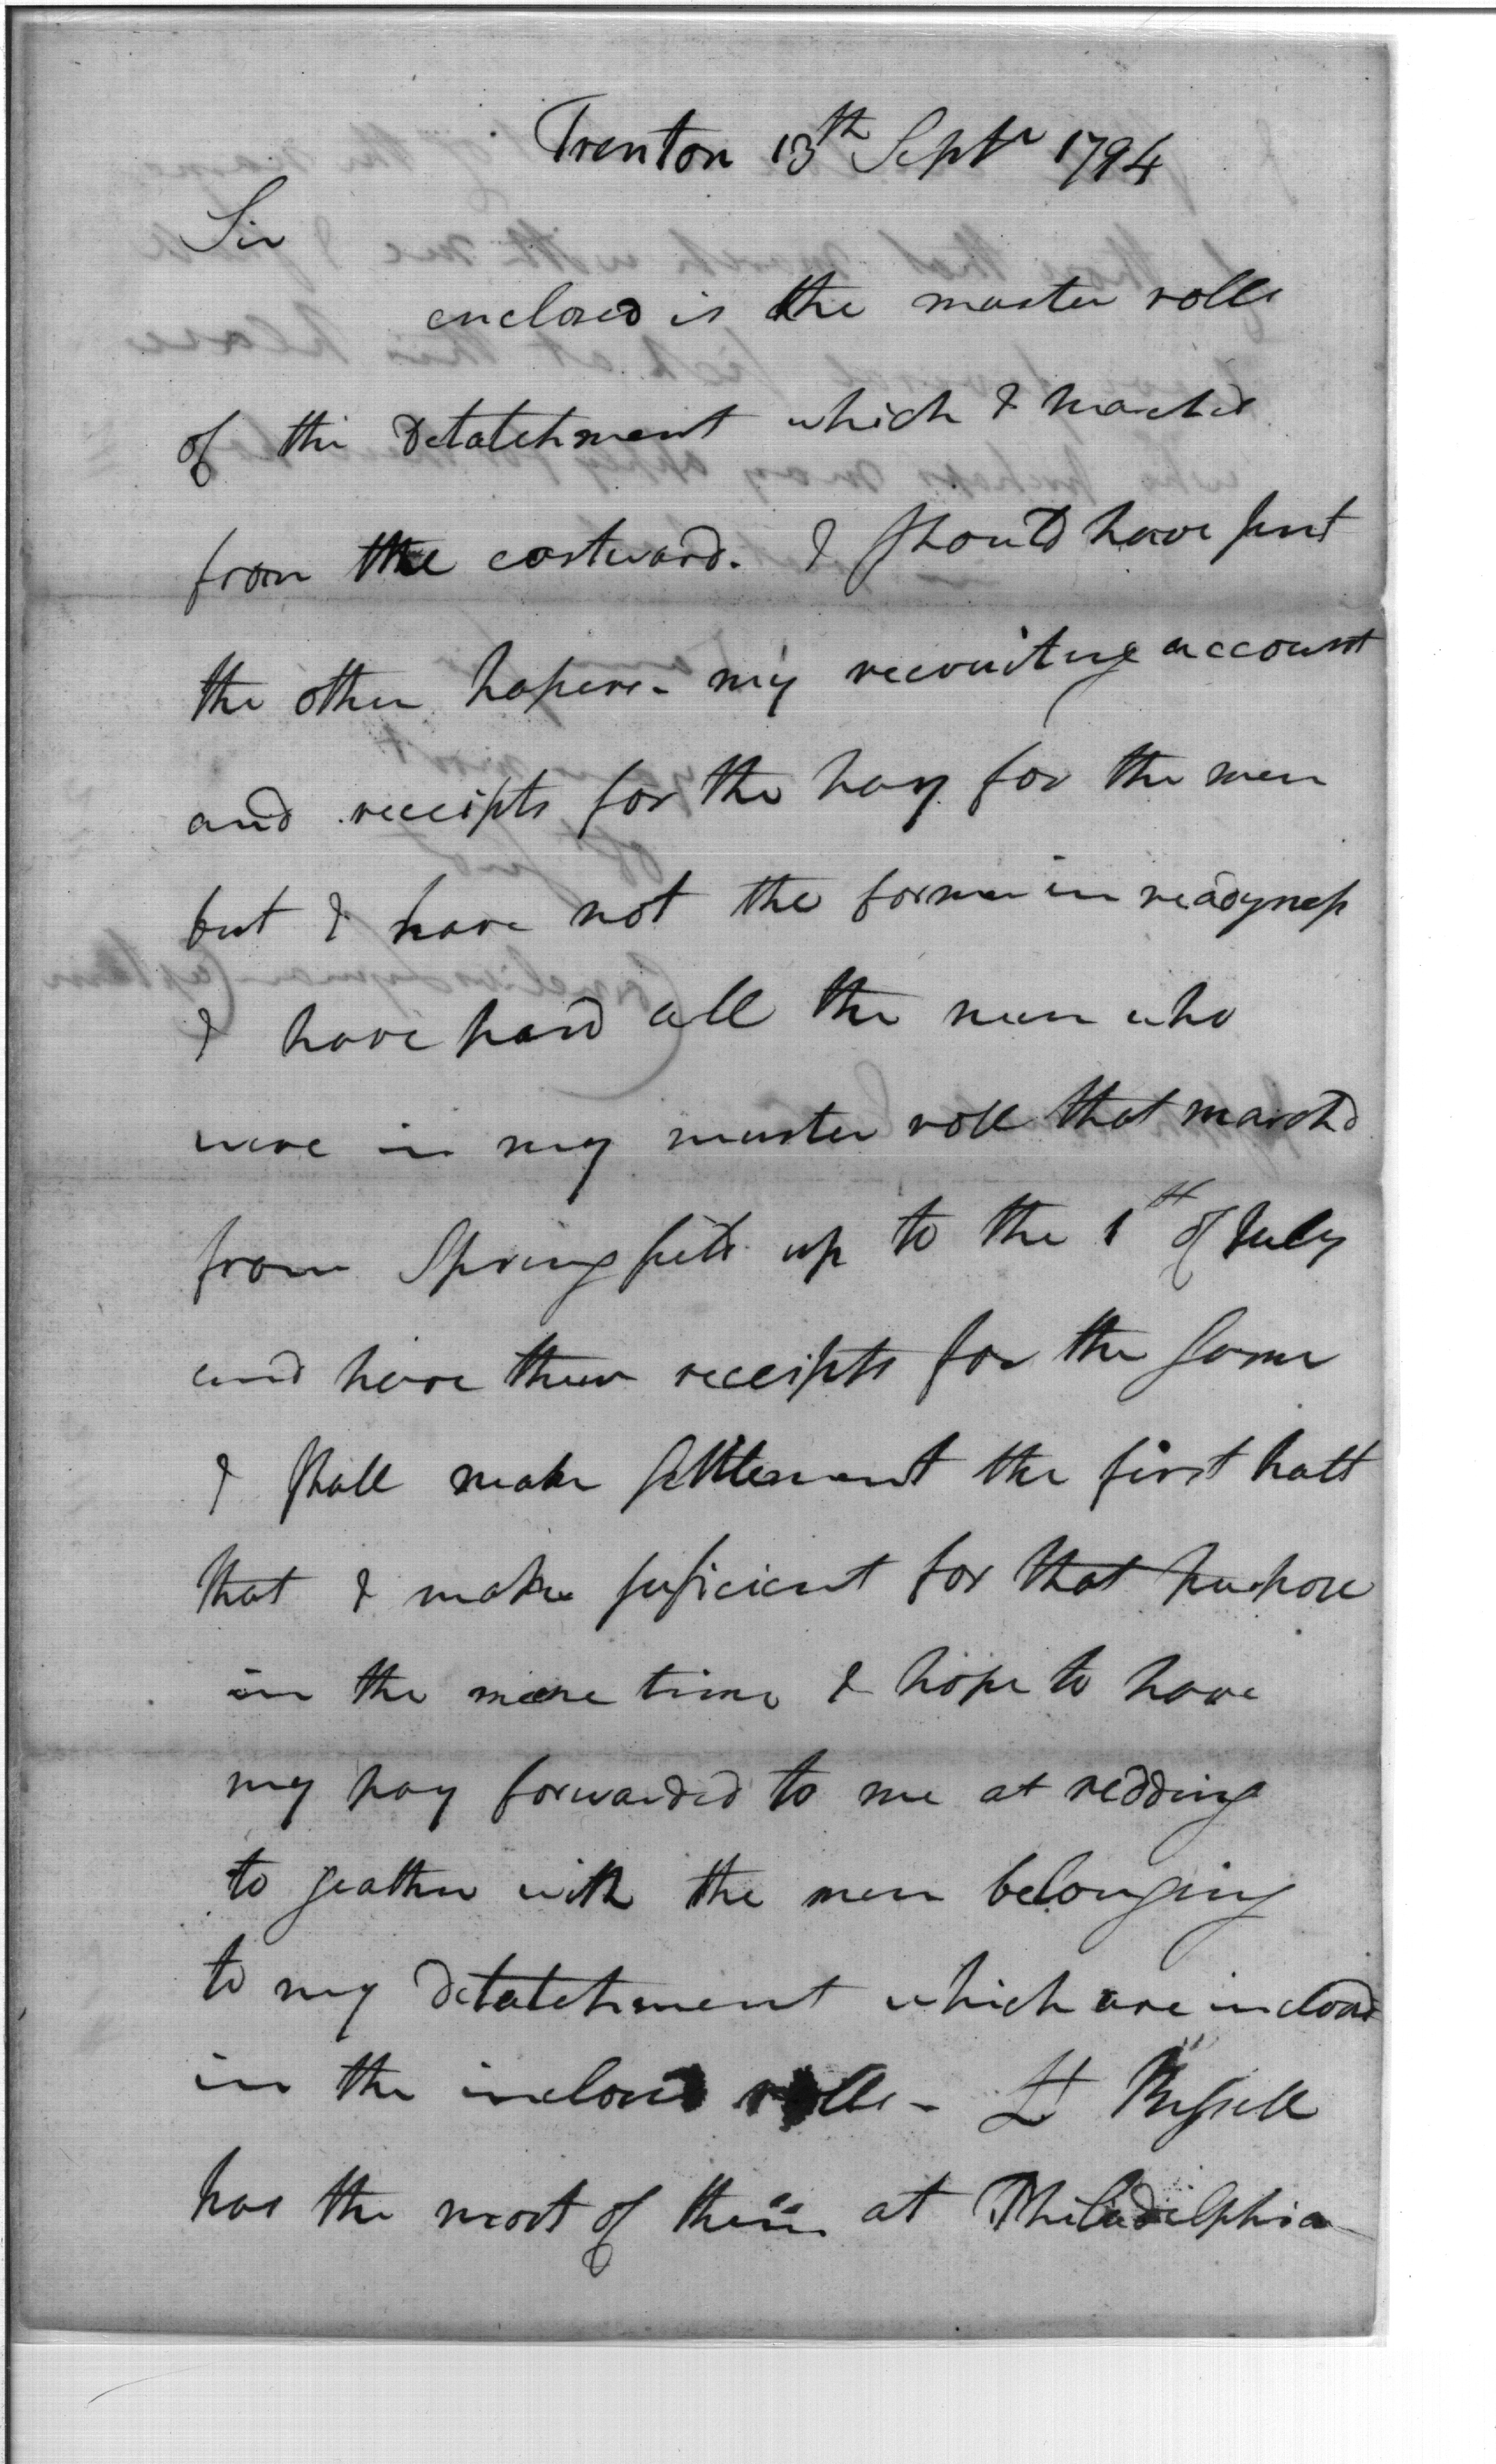 Trenton 13th Septr 1794
Sir
enclosed is the muster rolls
of the Detatchment which I march'd
from the eastward. I should have sent
the other papers - my recruiting account
and receipts for the pay for the men
but I have not the former in readyness
I have paid all the men who
were in my muster roll that march'd
from Springfield up to the 1st of July
and have their receipts for the same
I shall make settlement the first halt
that I make suficient for that purpose
in the mene time I hope to have
my pay forwarded to me at redding
to geather with the men belonging
to my Detatchment which are inclosd
in the inclosed rolls - Lt Bissell
has the most of them at Philadelphia